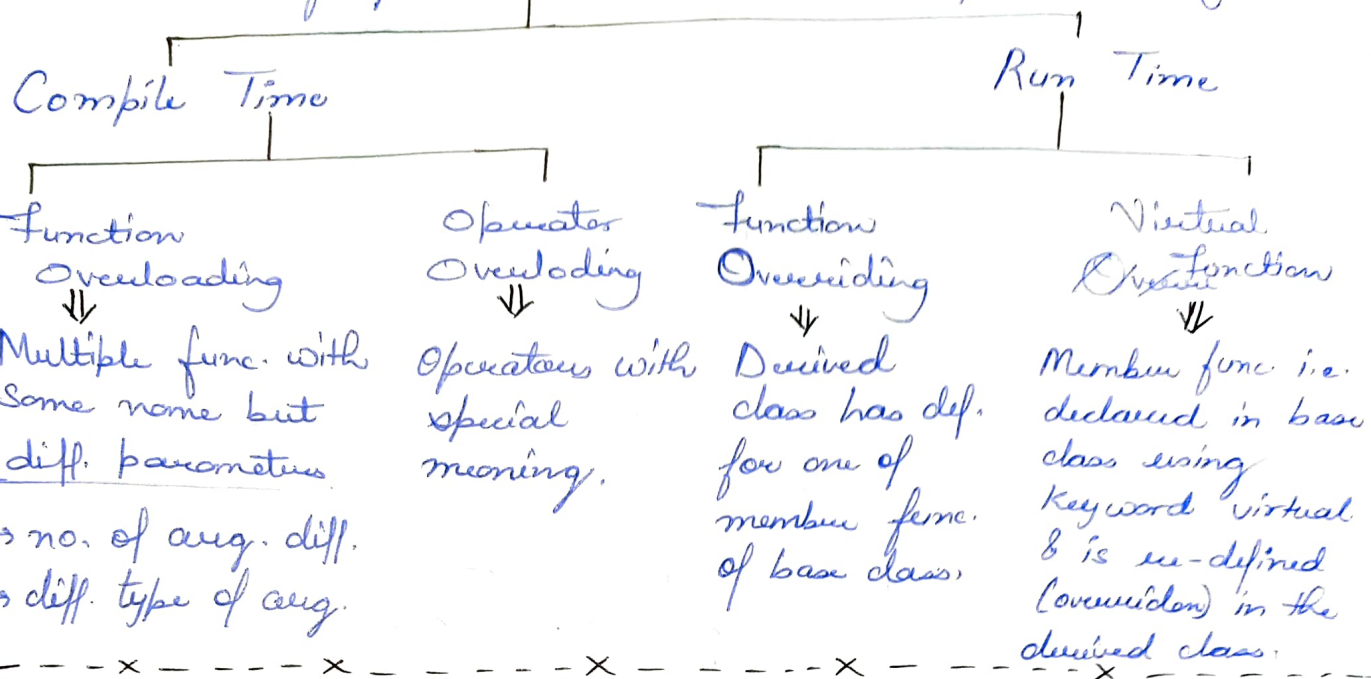 Compile Time
Run Time
Function
Overloading
Multiple func. with
Same name but
diff. parameters
no. of arg. diff.
diff. type of arg.
Operator
Overloding
Operators with
special
meaning.
Function
Overriding
Derived
class has def.
for one of
member func.
of base class.
Virtual
Function
Member func. i.e.
declared in base
class using
keyword virtual
& is re-defined
(overriden) in the
derived class.